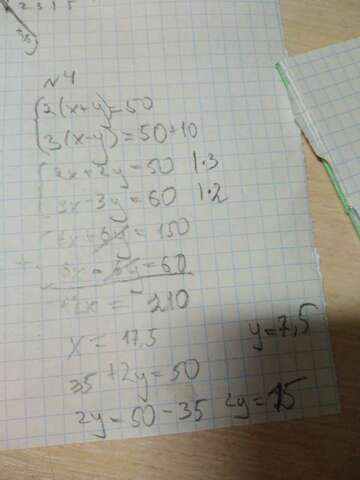 №4
2(x+y)=50
3(x-y)=50+10
2x+2y=50 |·3
3x-3y=60 |·2
6x+6y=150
6x-6y=60
12x=210
x=17,5
y=7,5
35+2y=50
2y=50-35 2y=15